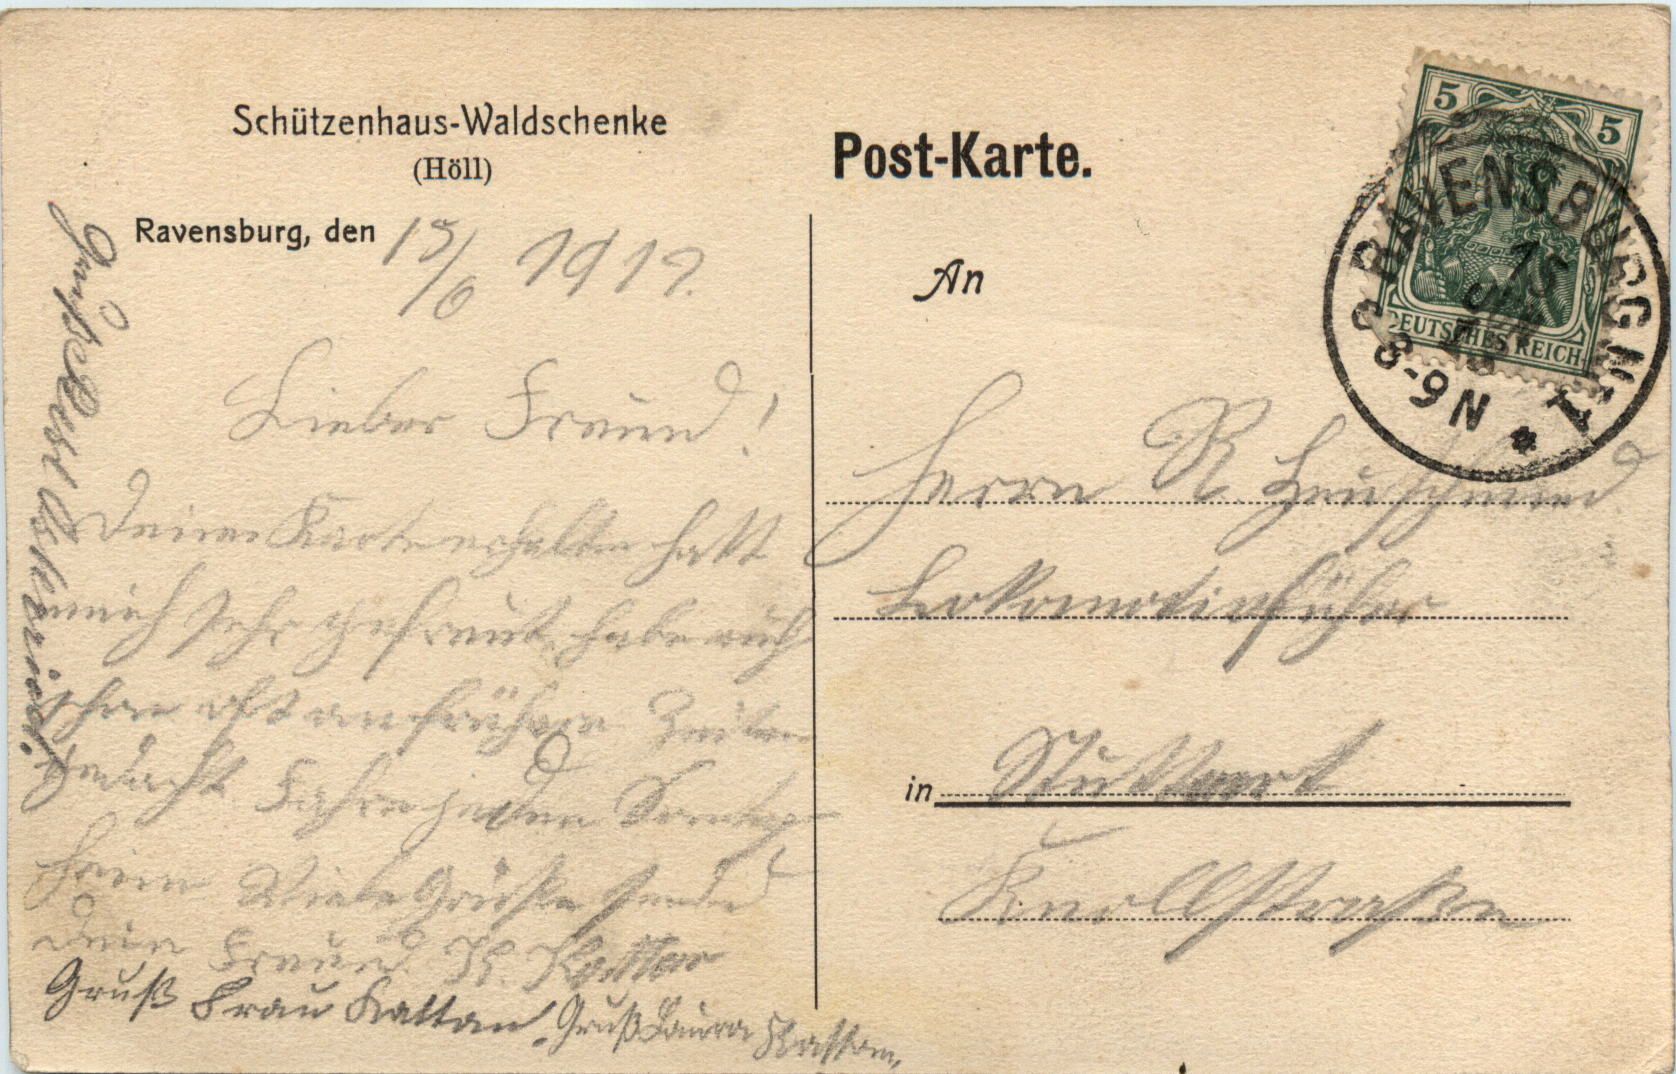 Schützenhaus-Waldschenke
(Höll)
Ravensburg, den 15/6 1912.
Lieber Freund!
Deine Karte erhalten hatt
mich sehr gefreut, habe auch
schon oft an frühere Zeiten
gedacht. Fahre jeden Sonntag
heim Viele Grüße sendet
Dein Freund K.
Gruß Frau Kattan.
Gruß Laura Kattan.
Post-Karte.
5 5
DEUTSCHES REICH
RAVENSBURG
JUN
8-9 N
An
Herrn R.
Lokomotivführer
in Stuttgart
Knollstraße